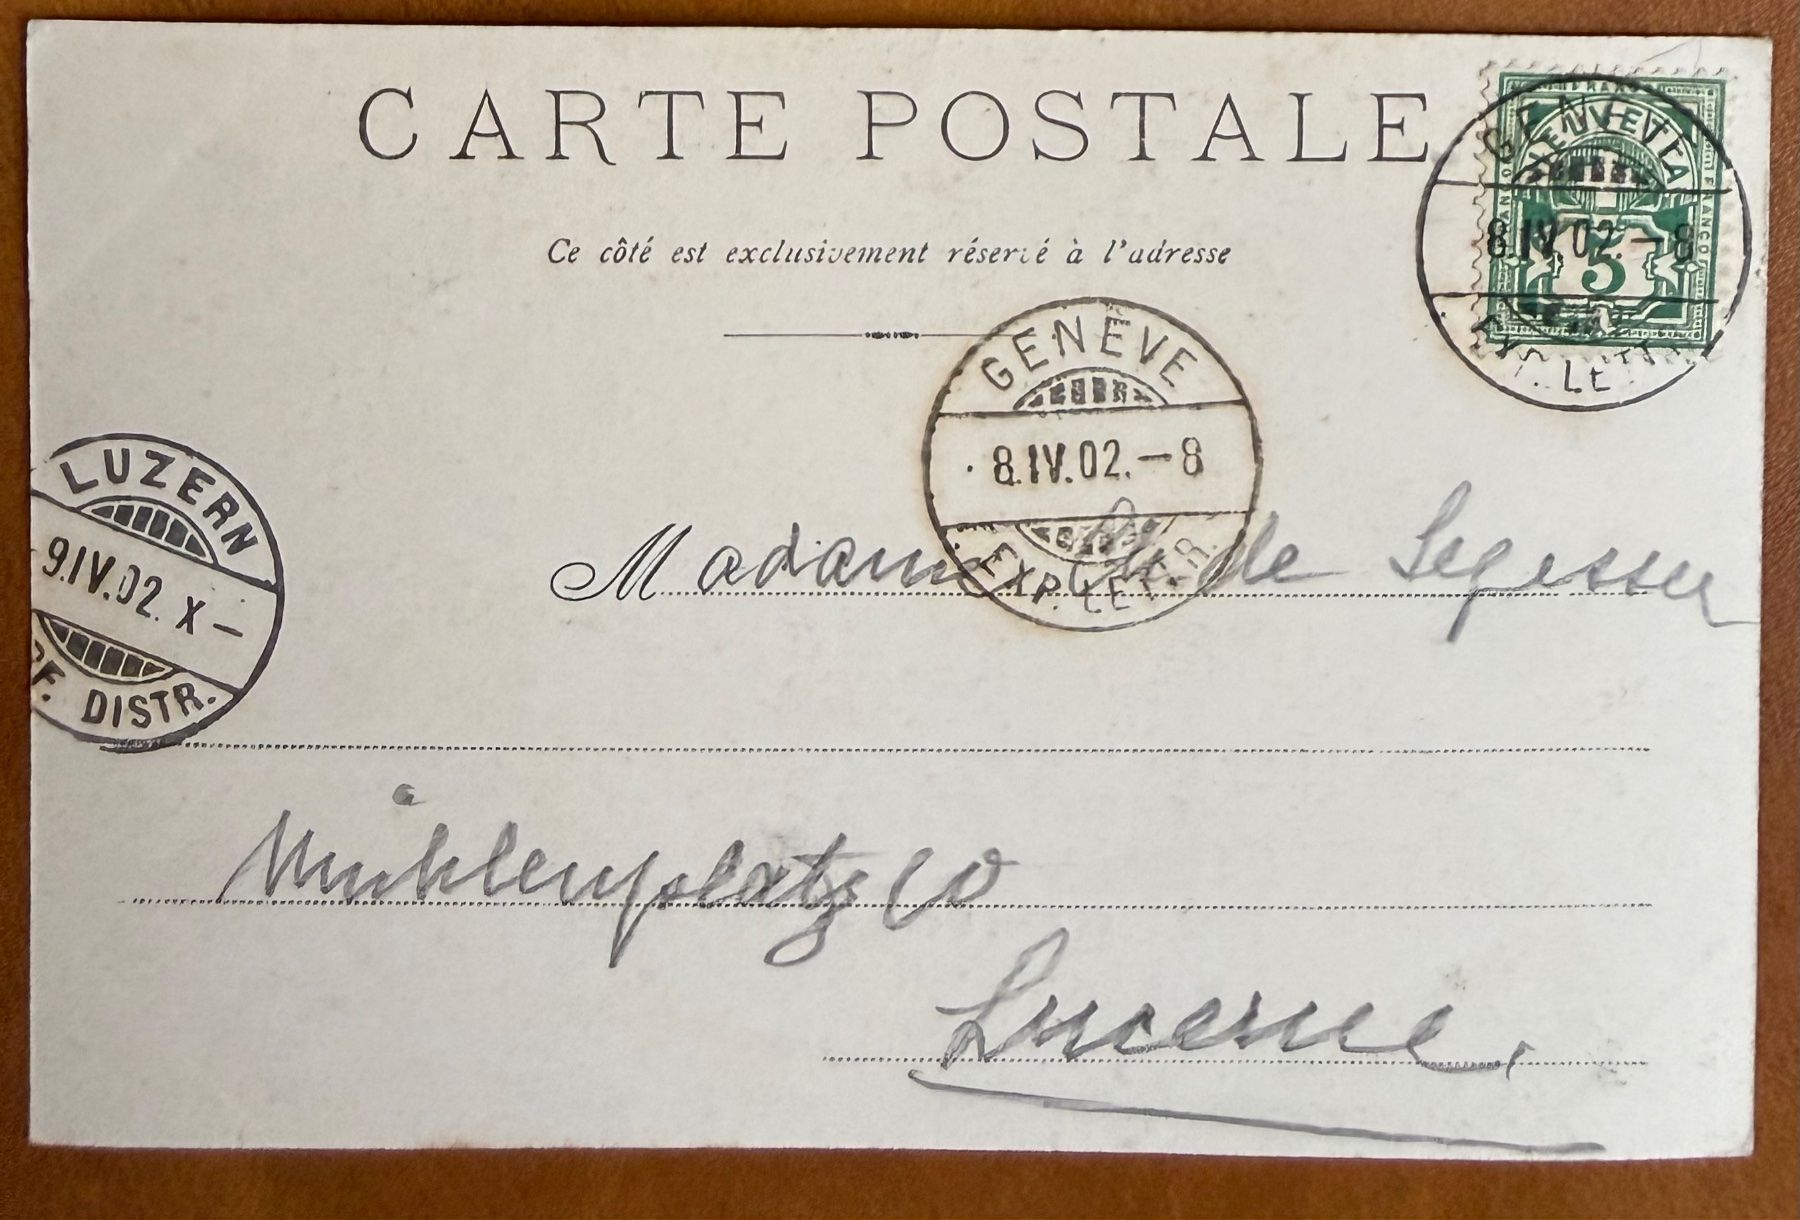 CARTE POSTALE
Ce côté est exclusivement réservé à l'adresse
HELVETIA
FRANCO
5
GENÈVE
8.IV.02.-8
EXP. LETTR.
GENÈVE
8.IV.02.-8
EXP. LETTR.
LUZERN
9.IV.02. X-
DISTR.
Madame de Segesser
Mühlenplatz
Lucerne.